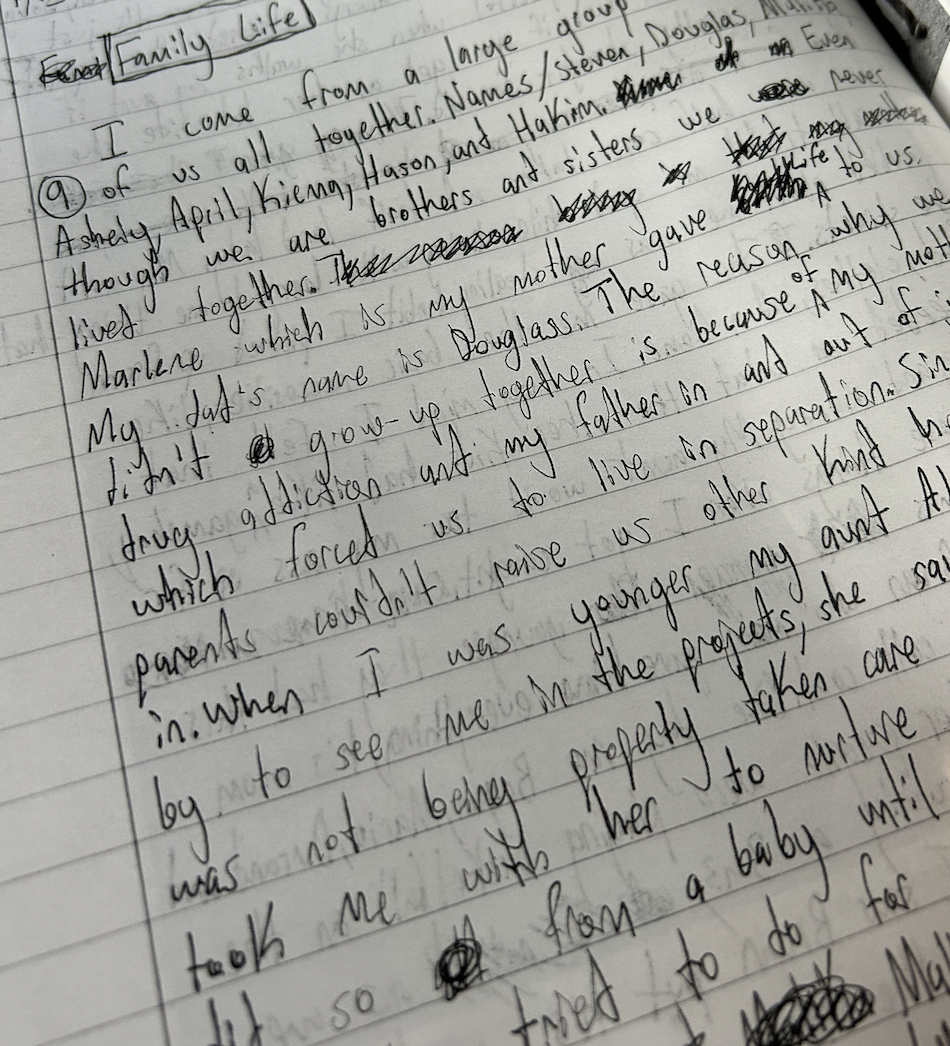 Family Life
I come from a large group
⑨ of us all together. Names/Steven, Douglas,
Ashely, April, Kiema, Hason, and Hakim. Even
though we are brothers and sisters we never
lived together.
Marlene which is my mother gave Life to us.
My dad's name is Douglass. The reason why we
didn't grow-up together is because of my
drug addiction and my father in and out of
which forced us to live in separation.
parents couldn't raise us other kind
in. When I was younger my aunt
by to see me in the projects, she
was not being property taken care
took me with her to nurture
from a baby until
did so tried to do for